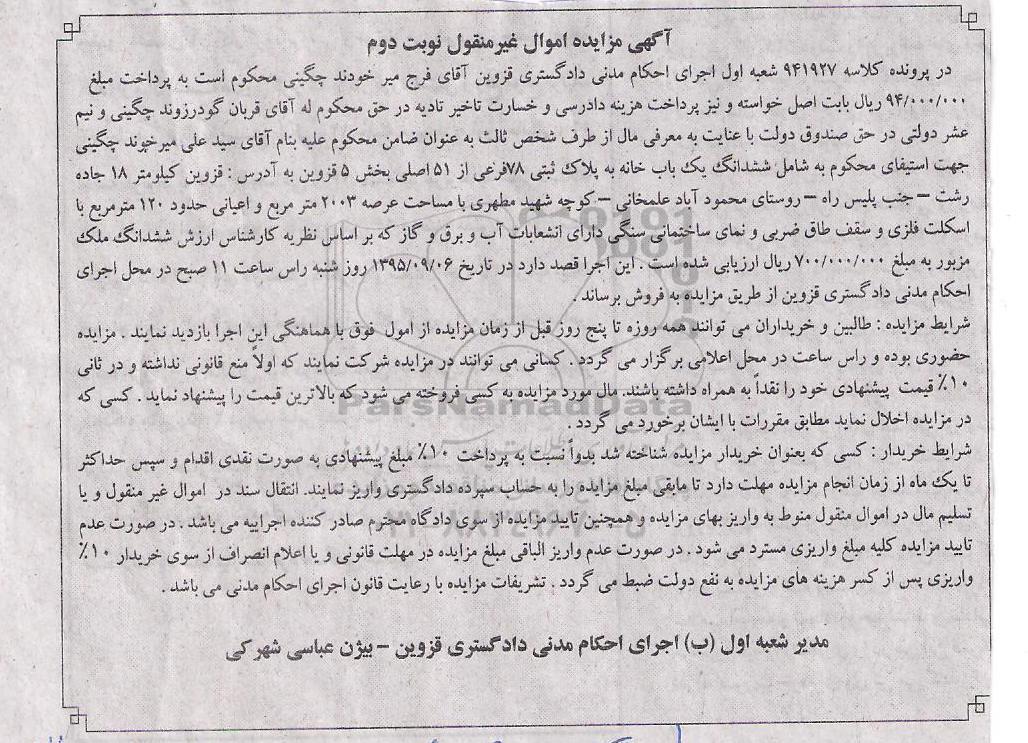 آگهی مزایده اموال غیرمنقول نوبت دوم
در پرونده کلاسه ۹۴۱۹۲۷ شعبه اول اجرای احکام مدنی دادگستری قزوین آقای فرج میر خودند چگینی محکوم است به پرداخت مبلغ
۹۴/۰۰۰/۰۰۰ ریال بابت اصل خواسته و نیز پرداخت هزینه دادرسی و خسارت تاخیر تادیه در حق محکوم له آقای قربان گودرزوند چگینی و نیم
عشر دولتی در حق صندوق دولت با عنایت به معرفی مال از طرف شخص ثالث به عنوان ضامن محکوم علیه بنام آقای سید علی میرخوند چگینی
جهت استیفای محکوم به شامل ششدانگ یک باب خانه به پلاک ثبتی ۷۸فرعی از ۵۱ اصلی بخش ۵ قزوین به آدرس : قزوین کیلومتر ۱۸ جاده
رشت – جنب پلیس راه – روستای محمود آباد علمخانی – کوچه شهید مطهری با مساحت عرصه ۲۰۰۳ متر مربع و اعیانی حدود ۱۲۰ مترمربع با
اسکلت فلزی و سقف طاق ضربی و نمای ساختمانی سنگی دارای انشعابات آب و برق و گاز که بر اساس نظریه کارشناس ارزش ششدانگ ملک
مزبور به مبلغ ۷۰۰/۰۰۰/۰۰۰ ریال ارزیابی شده است . این اجرا قصد دارد در تاریخ ۱۳۹۵/۰۹/۰۶ روز شنبه راس ساعت ۱۱ صبح در محل اجرای
احکام مدنی دادگستری قزوین از طریق مزایده به فروش برساند .
شرایط مزایده : طالبین و خریداران می توانند همه روزه تا پنج روز قبل از زمان مزایده از امول فوق با هماهنگی این اجرا بازدید نمایند . مزایده
حضوری بوده و راس ساعت در محل اعلامی برگزار می گردد . کسانی می توانند در مزایده شرکت نمایند که اولاً منع قانونی نداشته و در ثانی
۱۰٪ قیمت پیشنهادی خود را نقداً به همراه داشته باشند. مال مورد مزایده به کسی فروخته می شود که بالاترین قیمت را پیشنهاد نماید . کسی که
در مزایده اخلال نماید مطابق مقررات با ایشان برخورد می گردد .
شرایط خریدار : کسی که بعنوان خریدار مزایده شناخته شد بدواً نسبت به پرداخت ۱۰٪ مبلغ پیشنهادی به صورت نقدی اقدام و سپس حداکثر
تا یک ماه از زمان انجام مزایده مهلت دارد تا مابقی مبلغ مزایده را به حساب سپرده دادگستری واریز نمایند. انتقال سند در اموال غیر منقول و یا
تسلیم مال در اموال منقول منوط به واریز بهای مزایده و همچنین تایید مزایده از سوی دادگاه محترم صادر کننده اجراییه می باشد . در صورت عدم
تایید مزایده کلیه مبلغ واریزی مسترد می شود . در صورت عدم واریز الباقی مبلغ مزایده در مهلت قانونی و یا اعلام انصراف از سوی خریدار ۱۰٪
واریزی پس از کسر هزینه های مزایده به نفع دولت ضبط می گردد . تشریفات مزایده با رعایت قانون اجرای احکام مدنی می باشد .
مدیر شعبه اول (ب) اجرای احکام مدنی دادگستری قزوین – بیژن عباسی شهرکی
ParsNamadData